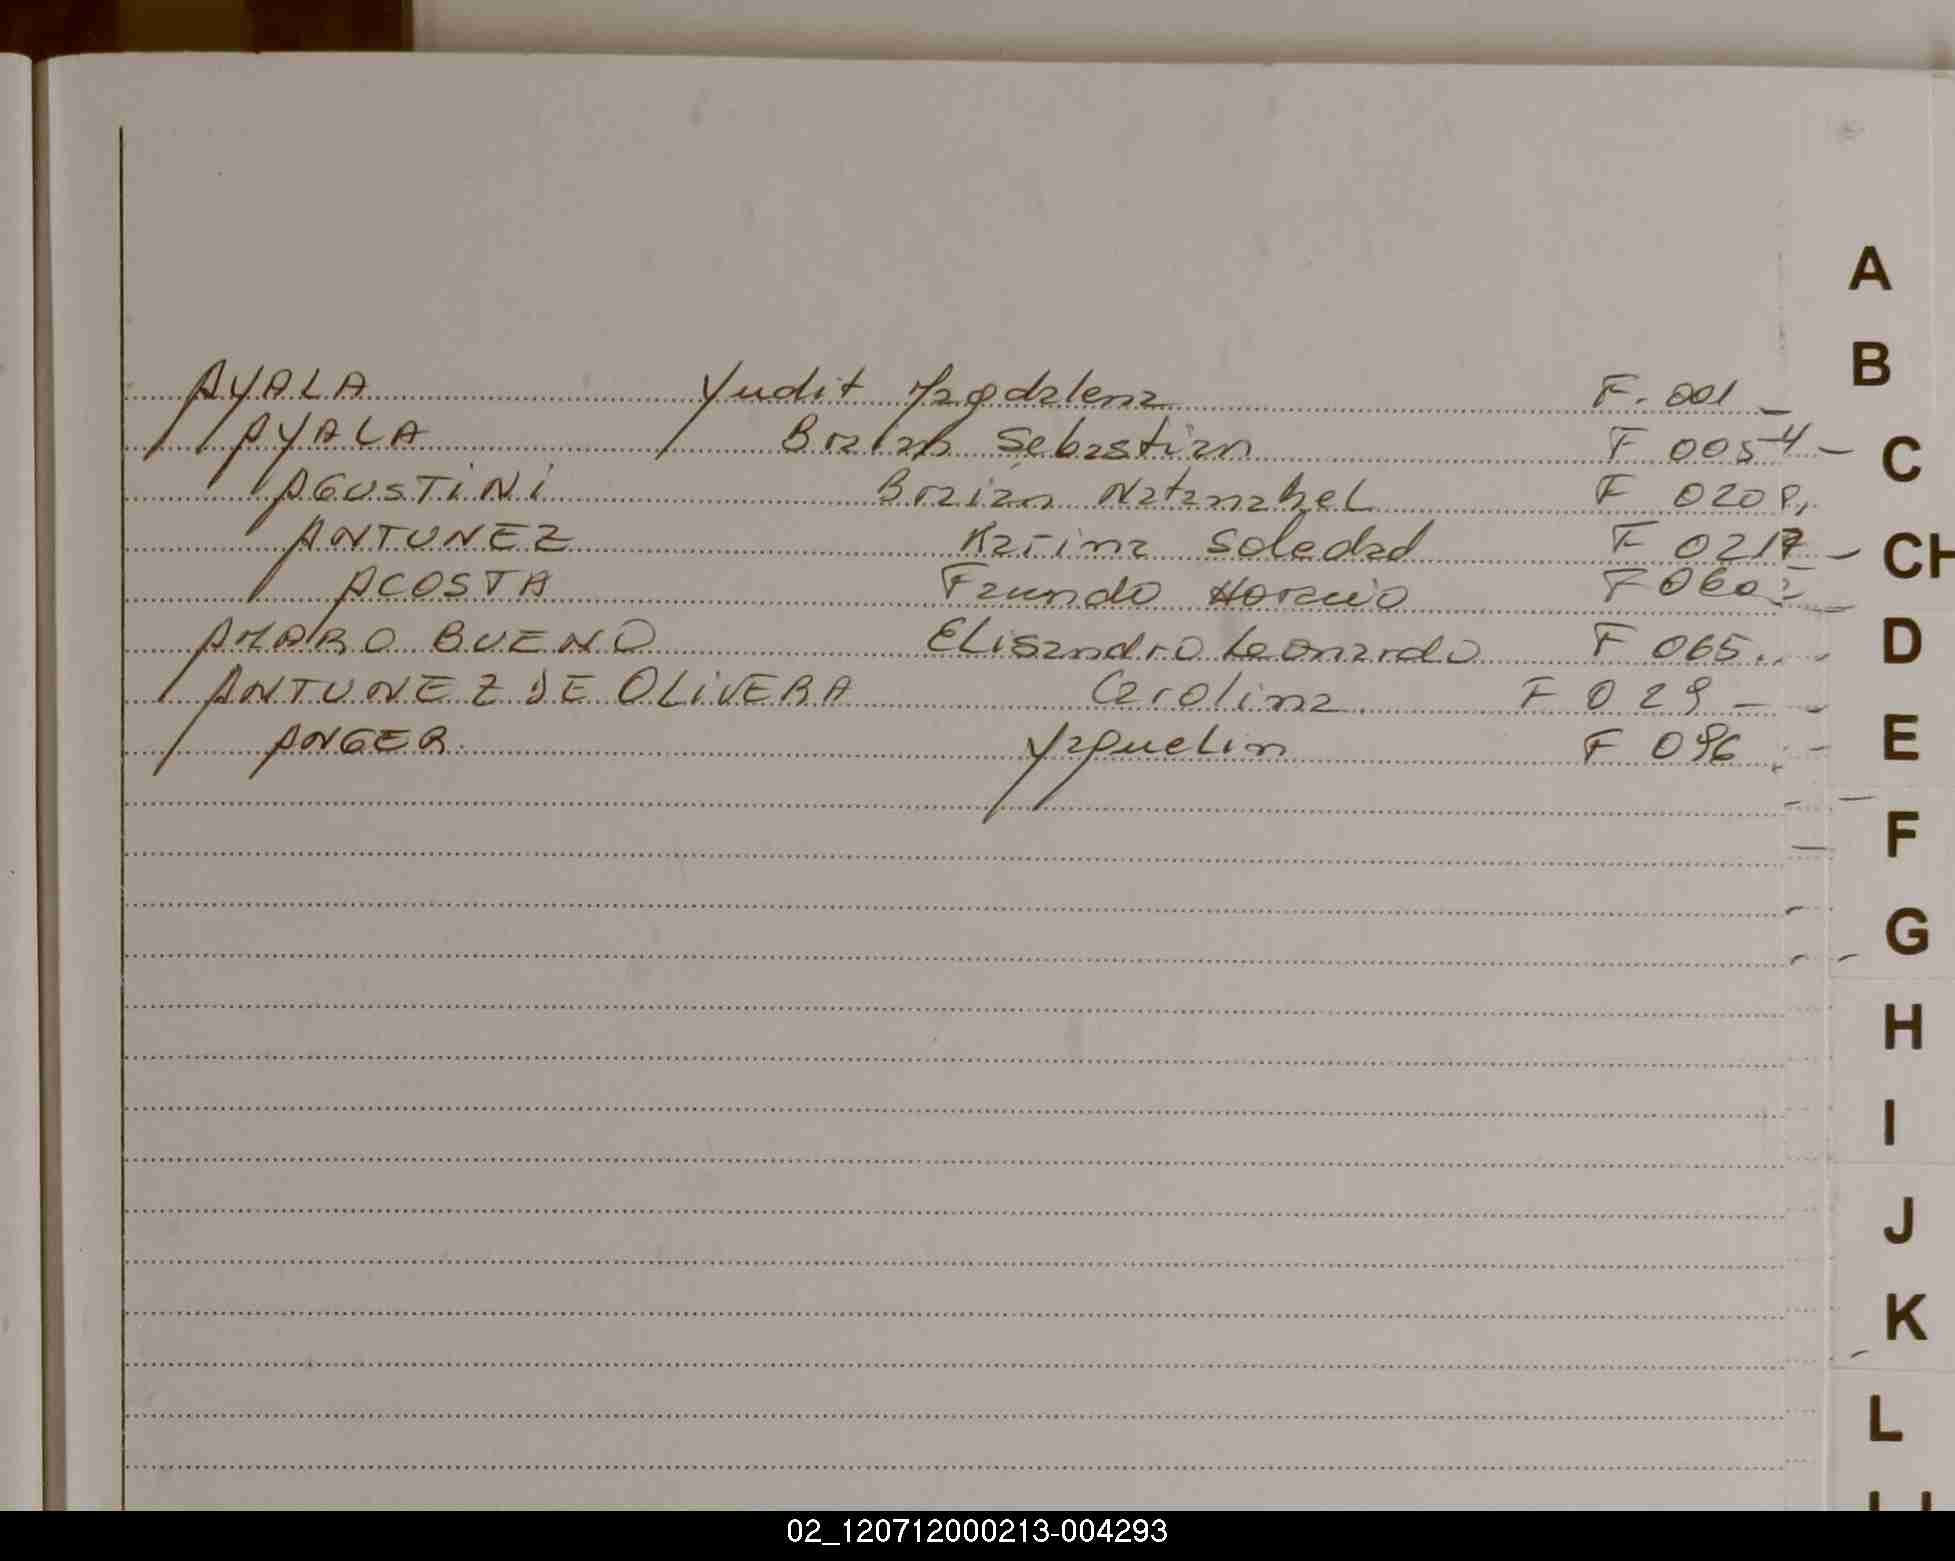 A
B
AYALA Yudit Magdalena F. 001 -
AYALA Braian Sebastian F 005 -
C
AGUSTINI Braian Natanahel F 020
ANTUNEZ Karina Soledad F 021 -
CH
ACOSTA Facundo Horacio F 060
AMARO BUENO Elisandro Leonardo F 065.
D
ANTUNEZ DE OLIVERA Carolina F 029 -
ANGER Yaquelin F 096
E
F
G
H
I
J
K
L
02_120712000213-004293